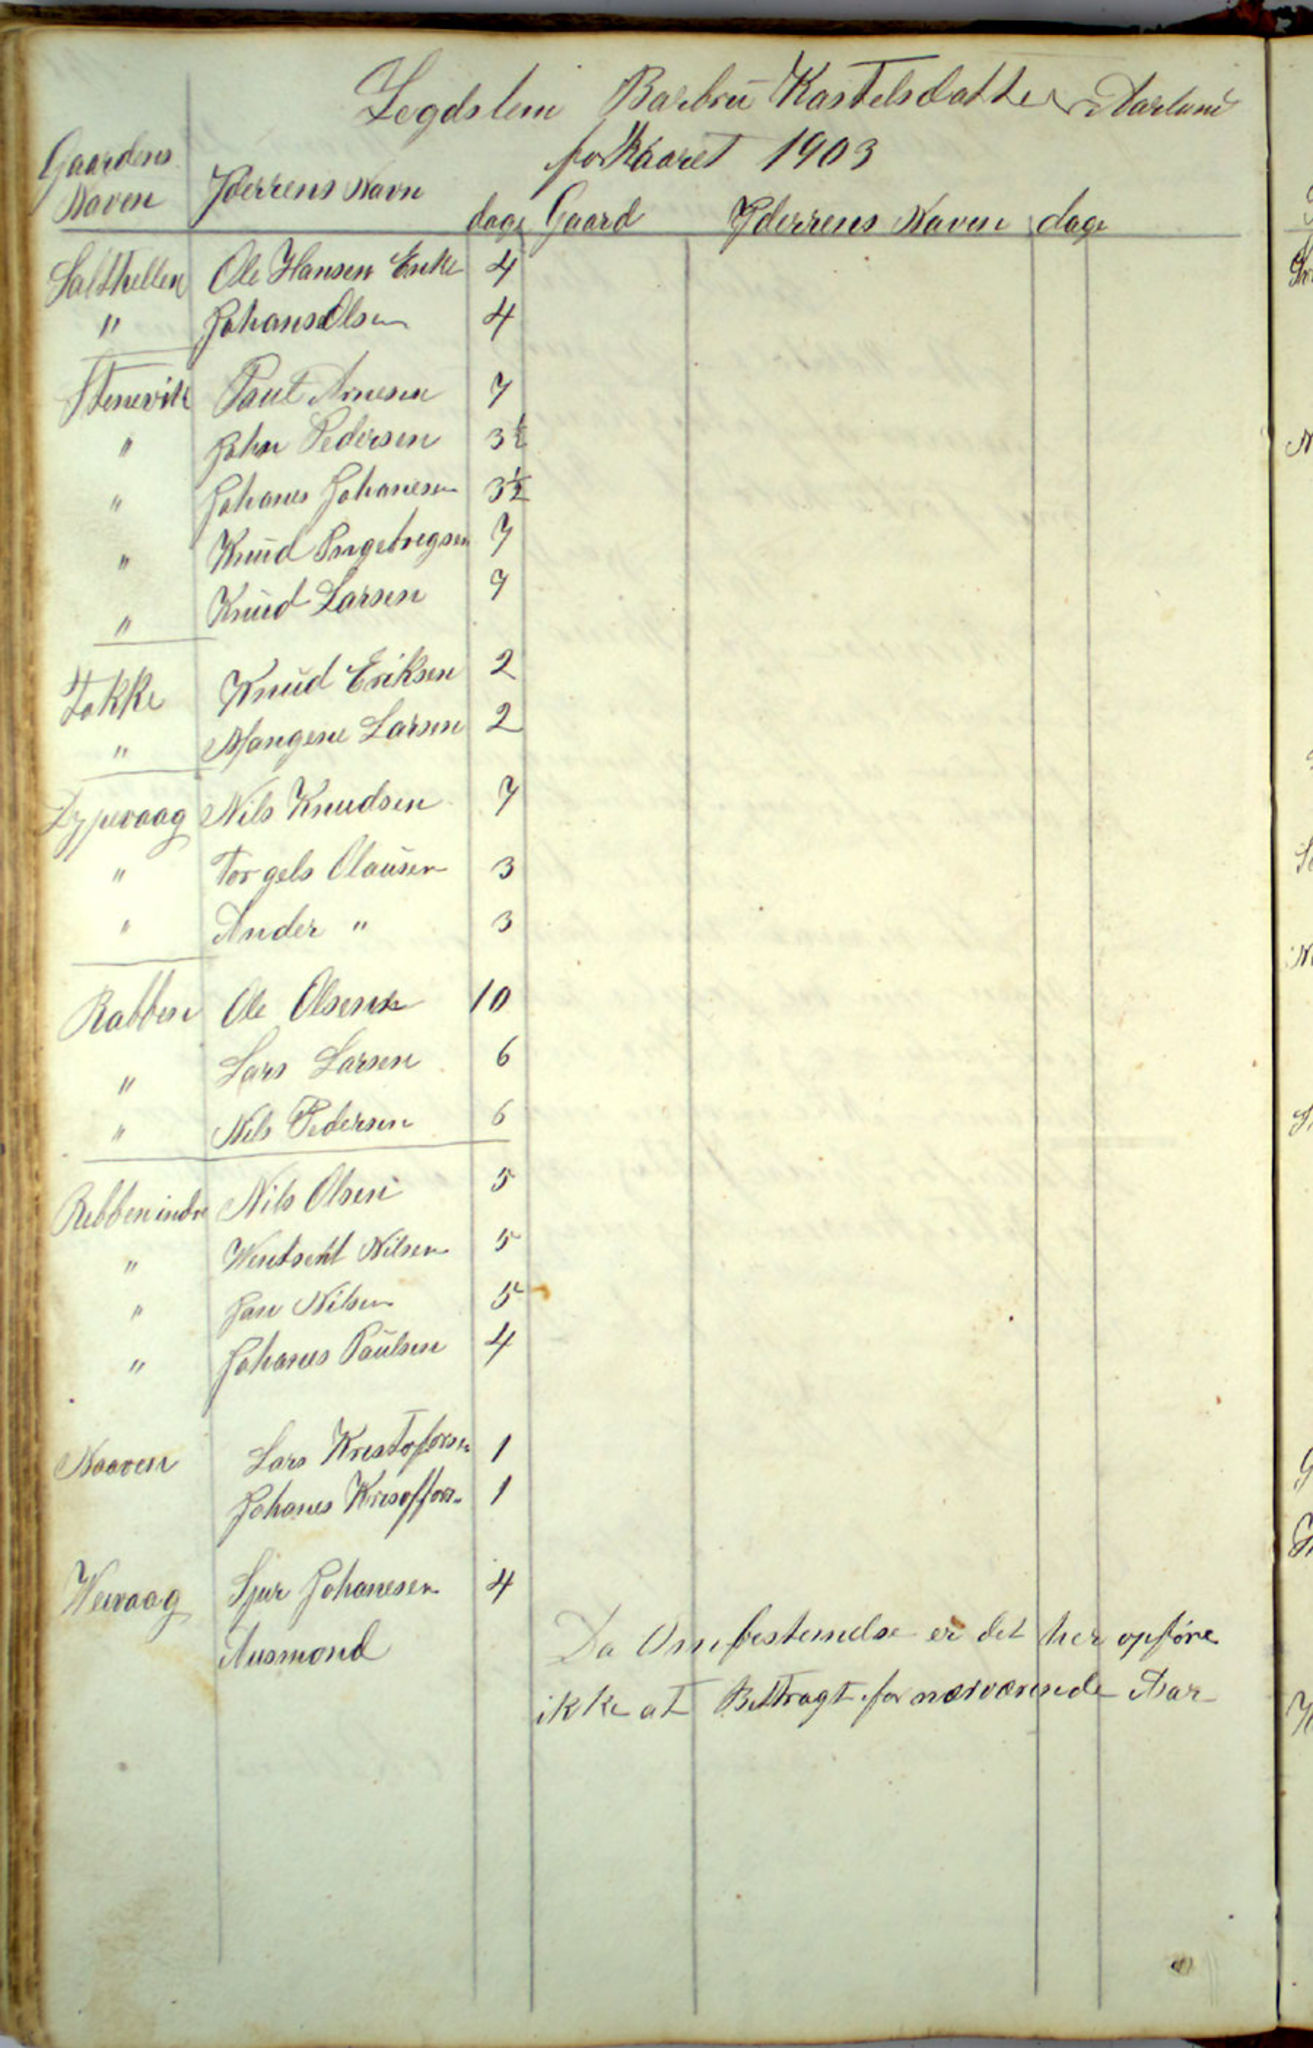 Legdslem Barbru Kastelsdatter Aarland
for Aaret 1903
Gaardens Naven Yderrens Navn dage Gaard Yderrens Naven dage
Salthellen Ole Hansen Enke 4
" Johans Olsen 4
Stenevik Paul Arnesen 7
" John Pedersen 3½
" Johanes Johanesen 3½
" Knud Ingebregsen 7
" Knud Larsen 7
Løkke Knud Eriksen 2
" Mangene Larsen 2
Dypevaag Nils Knudsen 7
" Torgels Olausen 3
" Ander " 3
Rabben Ole Olsen 10
" Lars Larsen 6
" Nils Pedersen 6
Rebben indre Nils Olsen 5
" Nilsen 5
" Jan Nilsen 5
" Johanes Paulsen 4
Naaven Lars Kristofersen 1
Johanes Krisoffors 1
Wevaag Sjur Johanesen 4
Ausmond
Da Om bestemelse er det her opføre
ikke at Bettragt for nærværende Aar